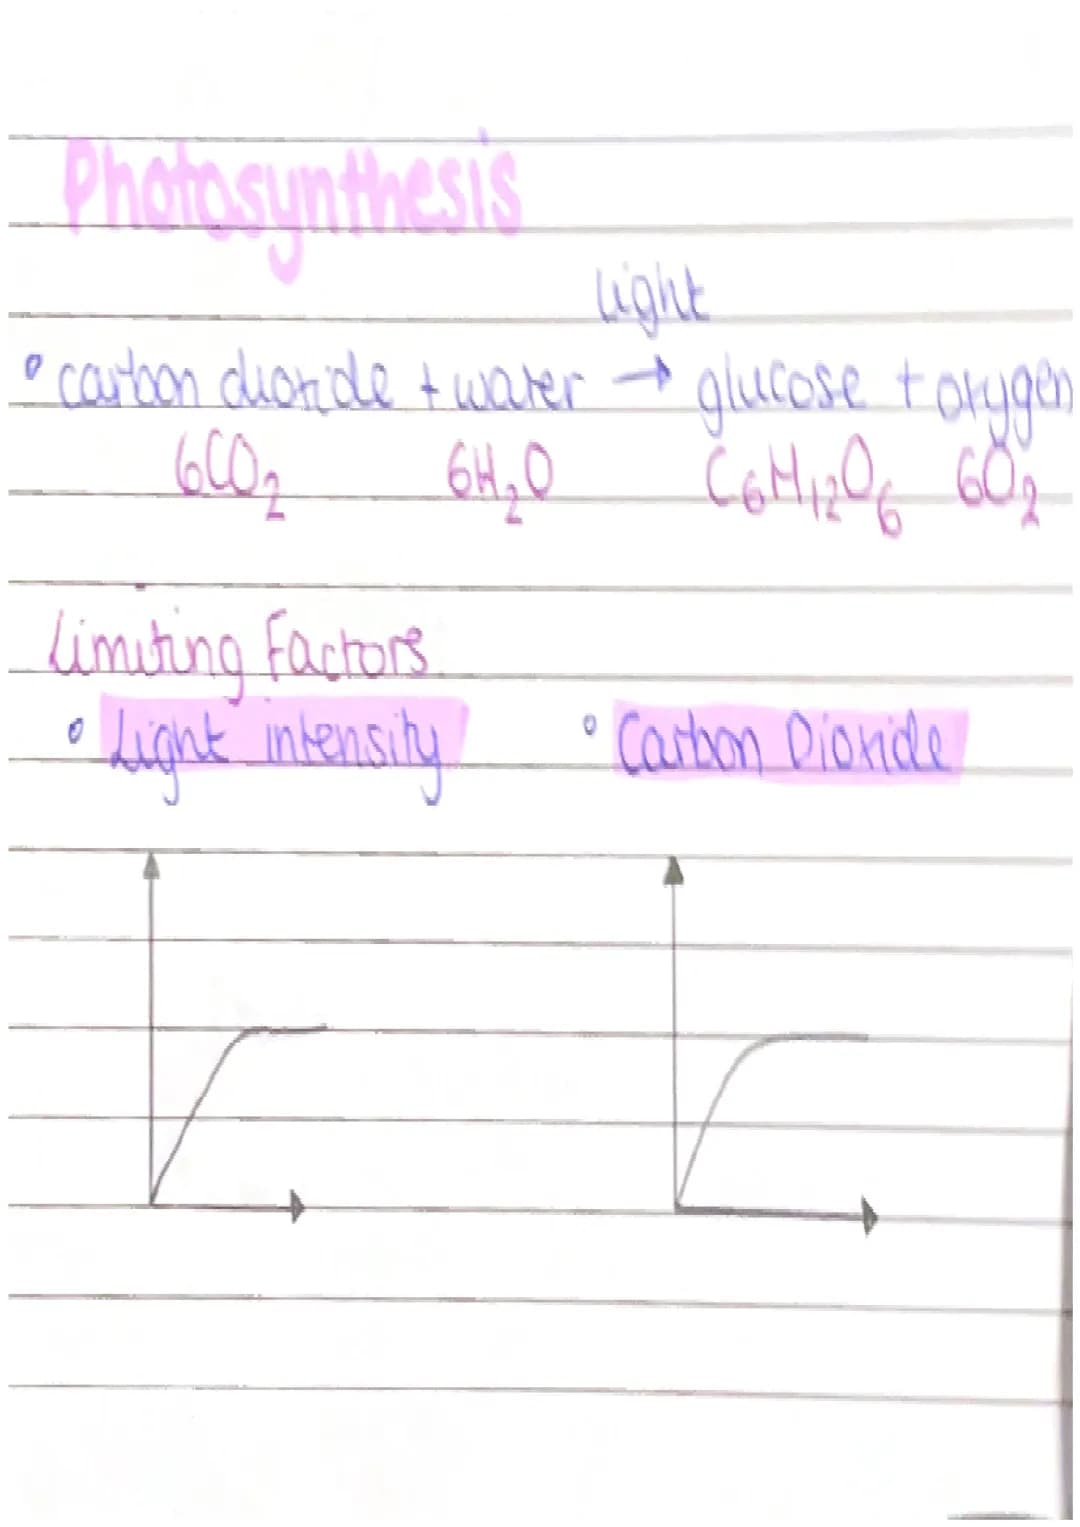 Photosynthesis
light
° carbon dioxide + water → glucose + oxygen
6CO₂ 6H₂O C₆H₁₂O₆ 6O₂
Limiting Factors
° Light intensity ° Carbon Dioxide